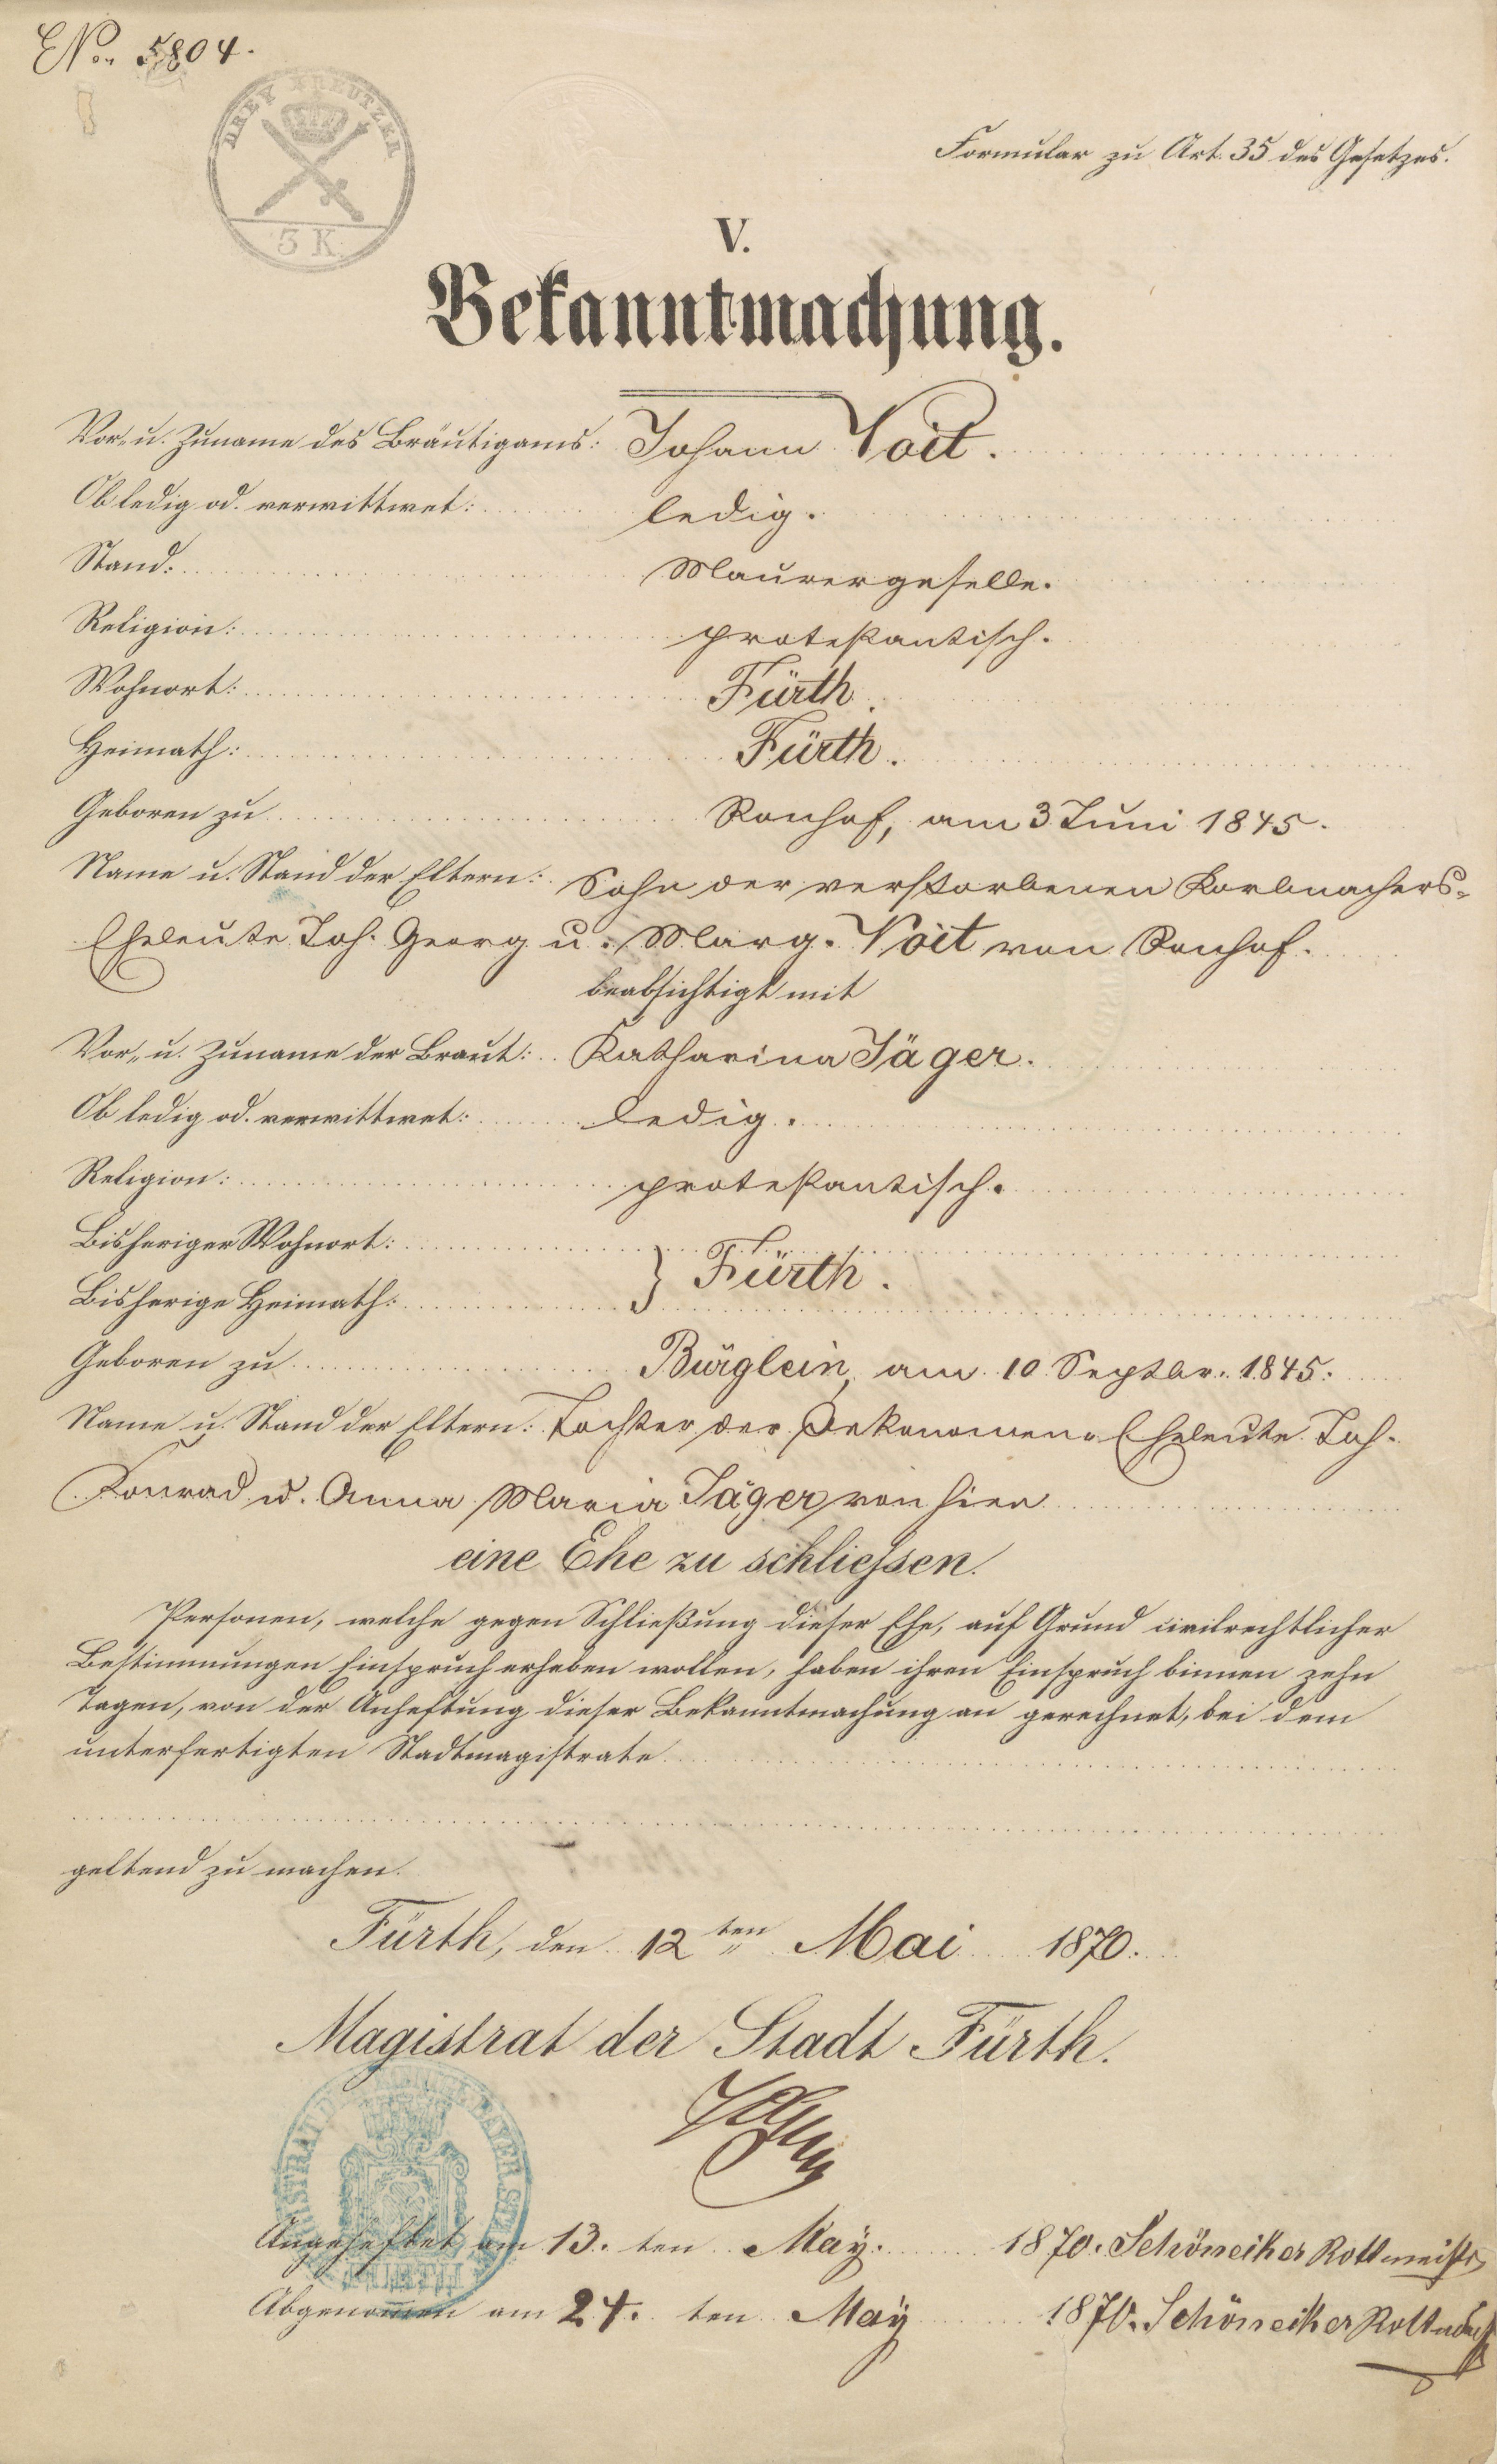 ENo. 5804.
DREY KREUTZER
3 K
Formular zu Art. 35 des Gesetzes.
V.
Bekanntmachung.
Vor- u. Zuname des Bräutigams: Johann Voit.
Ob ledig od. verwittwet: ledig.
Stand: Maurergeselle.
Religion: protestantisch.
Wohnort: Fürth.
Heimath: Fürth.
Geboren zu Ronhof, am 3 Juni 1845.
Name u. Stand der Eltern: Sohn der verstorbenen Korbmachers-
Eheleute Joh. Georg u. Marg. Voit von Ronhof.
beabsichtigt mit
Vor- u. Zuname der Braut: Katharina Jäger.
Ob ledig od. verwittwet: ledig.
Religion: protestantisch.
Bisheriger Wohnort:
Bisherige Heimath: } Fürth.
Geboren zu Bürglein, am 10 Septbr. 1845.
Name u. Stand der Eltern: Tochter der Oekonomen-Eheleute Joh.
Konrad u. Anna Maria Jäger von hier
eine Ehe zu schliessen.
Personen, welche gegen Schließung dieser Ehe, auf Grund civilrechtlicher
Bestimmungen Einspruch erheben wollen, haben ihren Einspruch binnen zehn
Tagen, von der Anheftung dieser Bekanntmachung an gerechnet, bei dem
unterfertigten Stadtmagistrate
geltend zu machen.
Fürth, den 12ten Mai 1870.
Magistrat der Stadt Fürth.
Angeheftet am 13. ten May. 1870. Schöneiker Rottmeister
Abgenommen am 24. ten May 1870. Schöneiker Rottmeister